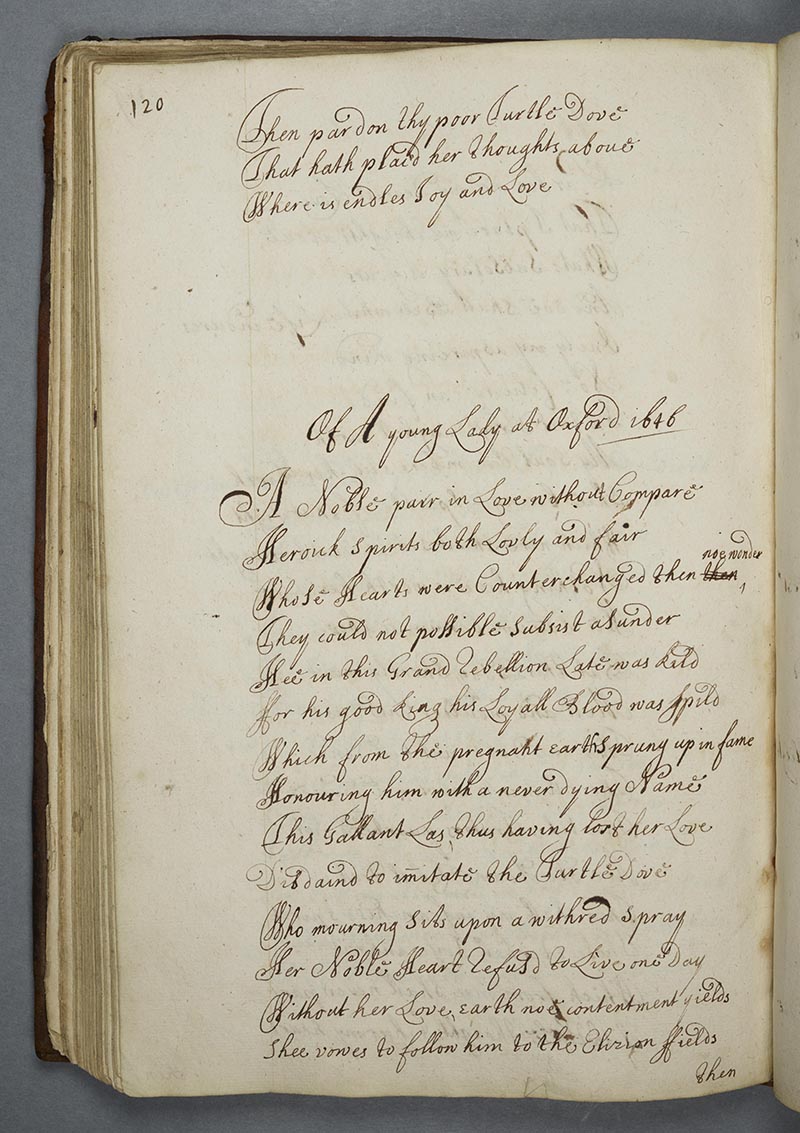 120
Then pardon thy poor Turtle Dove
That hath placd her thoughts above
Where is endles Joy and Love
Of A young Lady at Oxford 1646
A Noble pair in Love without Compare
Heroick Spirits both Lovly and fair
noe wonder
Whose Hearts were Counterchanged then then
They could not possible Subsist asunder
Hee in this Grand rebellion Late was kild
ffor his good King his Loyall Blood was spild
Which from the pregnant earth Sprung up in fame
Honouring him with a never dying Name
This Gallant Las thus having lost her Love
Disdaind to imitate the Turtle Dove
Who mourning Sits upon a withred Spray
Her Noble Heart refusd to Live one Day
Without her Love, earth noe contentment yields
Shee vowes to follow him to the Elizian ffields
then